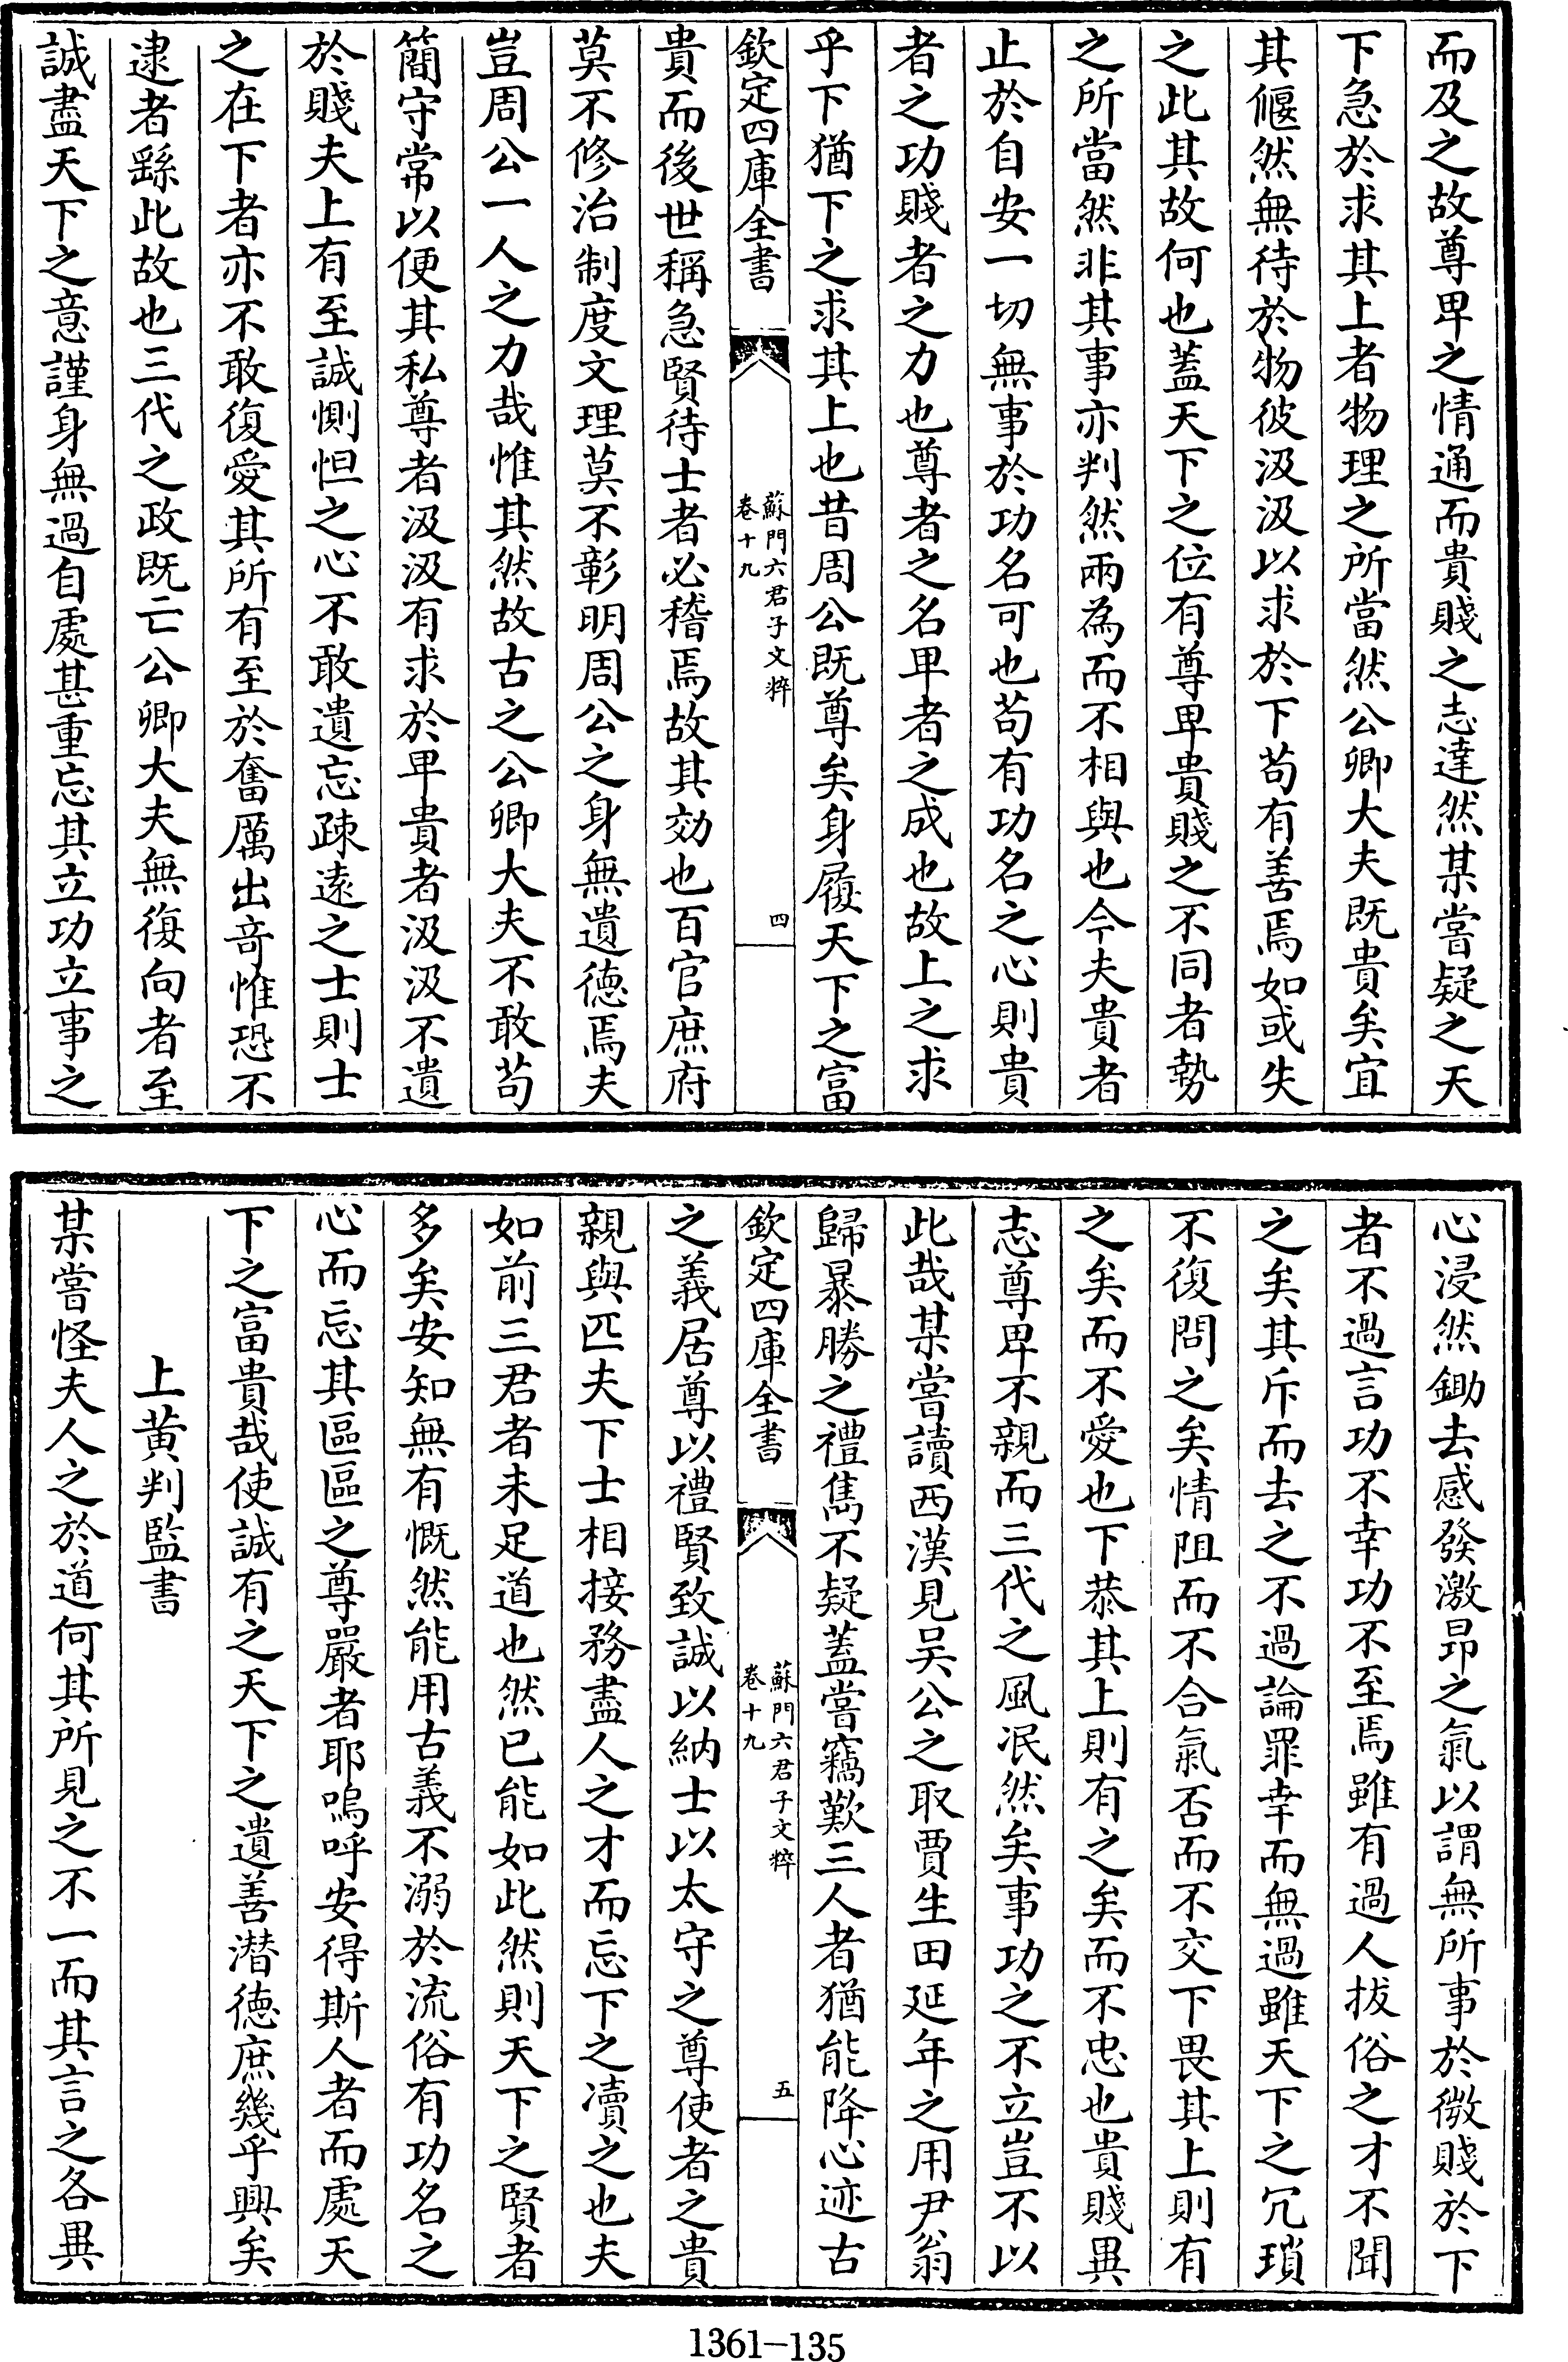 而及之故尊卑之情通而貴賤之志達然某嘗疑之天
下急於求其上者物理之所當然公卿大夫既貴矣宜
其偃然無待於物彼汲汲以求於下苟有善焉如或失
之此其故何也蓋天下之位有尊卑貴賤之不同者勢
之所當然非其事亦判然兩為而不相與也今夫貴者
止於自安一切無事於功名可也苟有功名之心則貴
者之功賤者之力也尊者之名卑者之成也故上之求
乎下猶下之求其上也昔周公既尊矣身履天下之富
欽定四庫全書
蘇門六君子文粹
卷十九
四
貴而後世稱急賢待士者必稽焉故其効也百官庶府
莫不修治制度文理莫不彰明周公之身無遺德焉夫
豈周公一人之力哉惟其然故古之公卿大夫不敢苟
簡守常以便其私尊者汲汲有求於卑貴者汲汲不遺
於賤夫上有至誠惻怛之心不敢遺忘疎遠之士則士
之在下者亦不敢復愛其所有至於奮厲出竒惟恐不
逮者繇此故也三代之政既亡公卿大夫無復向者至
誠盡天下之意謹身無過自處甚重忘其立功立事之
心浸然鋤去感發激昂之氣以謂無所事於微賤於下
者不過言功不幸功不至焉雖有過人拔俗之才不聞
之矣其斥而去之不過論罪幸而無過雖天下之冗瑣
不復問之矣情阻而不合氣否而不交下畏其上則有
之矣而不愛也下恭其上則有之矣而不忠也貴賤異
志尊卑不親而三代之風泯然矣事功之不立豈不以
此哉某嘗讀西漢見吴公之取賈生田延年之用尹翁
歸暴勝之禮雋不疑蓋嘗竊歎三人者猶能降心迹古
欽定四庫全書
蘇門六君子文粹
卷十九
五
之義居尊以禮賢致誠以納士以太守之尊使者之貴
親與匹夫下士相接務盡人之才而忘下之凟之也夫
如前三君者未足道也然已能如此然則天下之賢者
多矣安知無有慨然能用古義不溺於流俗有功名之
心而忘其區區之尊嚴者耶嗚呼安得斯人者而處天
下之富貴哉使誠有之天下之遺善潛德庶幾乎興矣
上黄判監書
某嘗怪夫人之於道何其所見之不一而其言之各異
1361-135